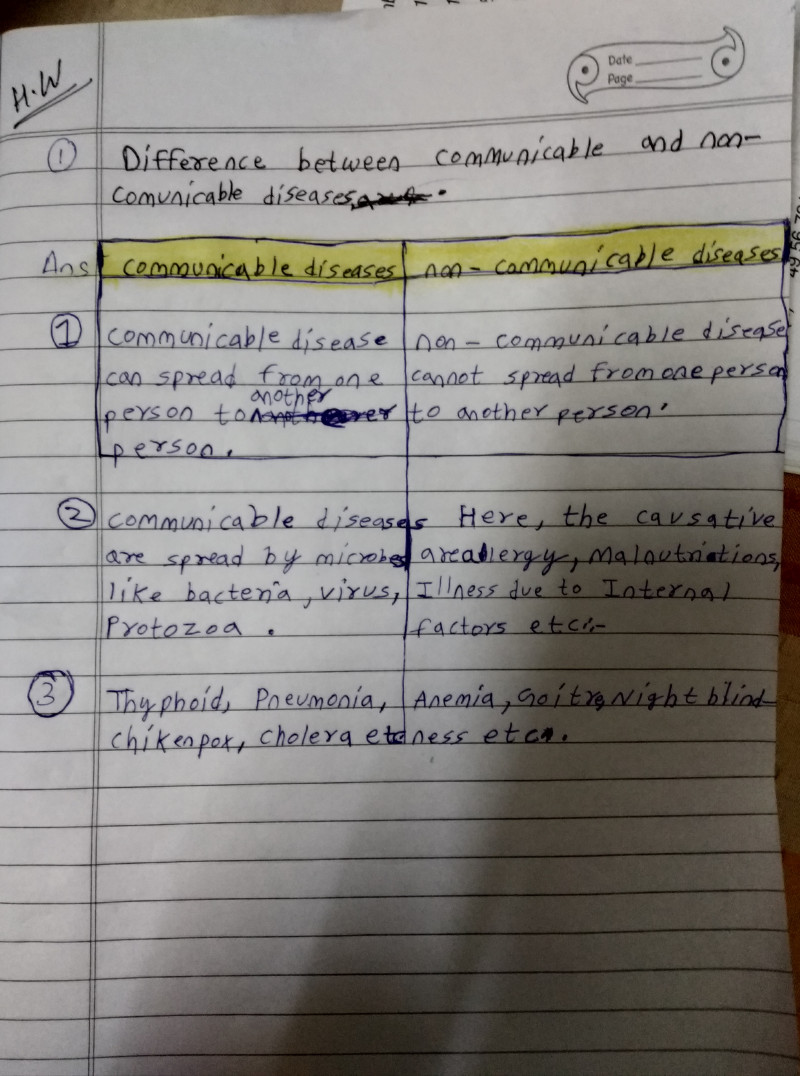 H.W
Date
Page
① Difference between communicable and non-
comunicable diseases.
Ans communicable diseases non-communicable diseases
① communicable disease non-communicable disease
can spread from one cannot spread from one person
another
person to to another person.
person.
② communicable diseases Here, the causative
are spread by microbes are allergy, Malnutriations,
like bacteria, virus, Illness due to Internal
Protozoa. factors etc:-
③ Thyphoid, Pneumonia, Anemia, Goitre, Night blind-
chikenpox, cholera etc ness etc.